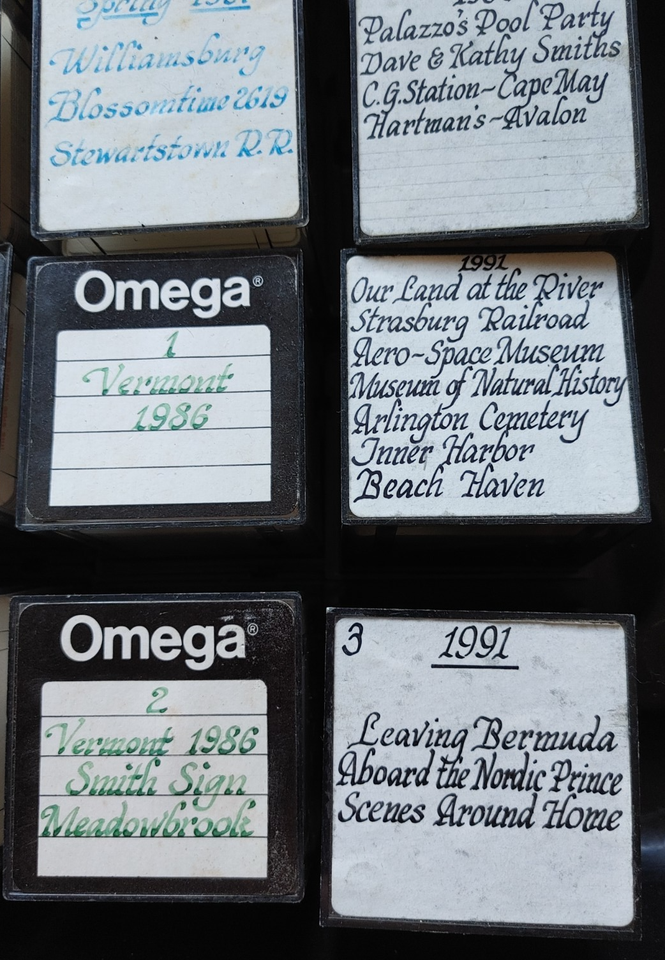 Spring
Williamsburg
Blossomtime 2619
Stewartstown R.R.
Palazzo's Pool Party
Dave & Kathy Smiths
C.G. Station~Cape May
Hartman's~Avalon
Omega®
1
Vermont
1986
1991
Our Land at the River
Strasburg Railroad
Aero~Space Museum
Museum of Natural History
Arlington Cemetery
Inner Harbor
Beach Haven
Omega®
2
Vermont 1986
Smith Sign
Meadowbrook
3 1991
Leaving Bermuda
Aboard the Nordic Prince
Scenes Around Home